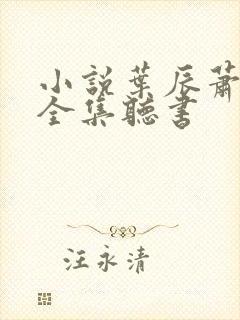 小說葉辰蕭
全集聽書
汪永清